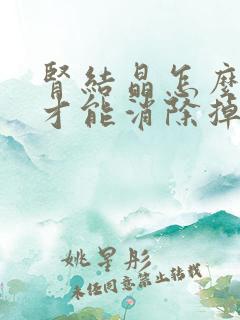 腎結晶怎麼
才能消除掉
姚星彤
未經同意禁止轉載